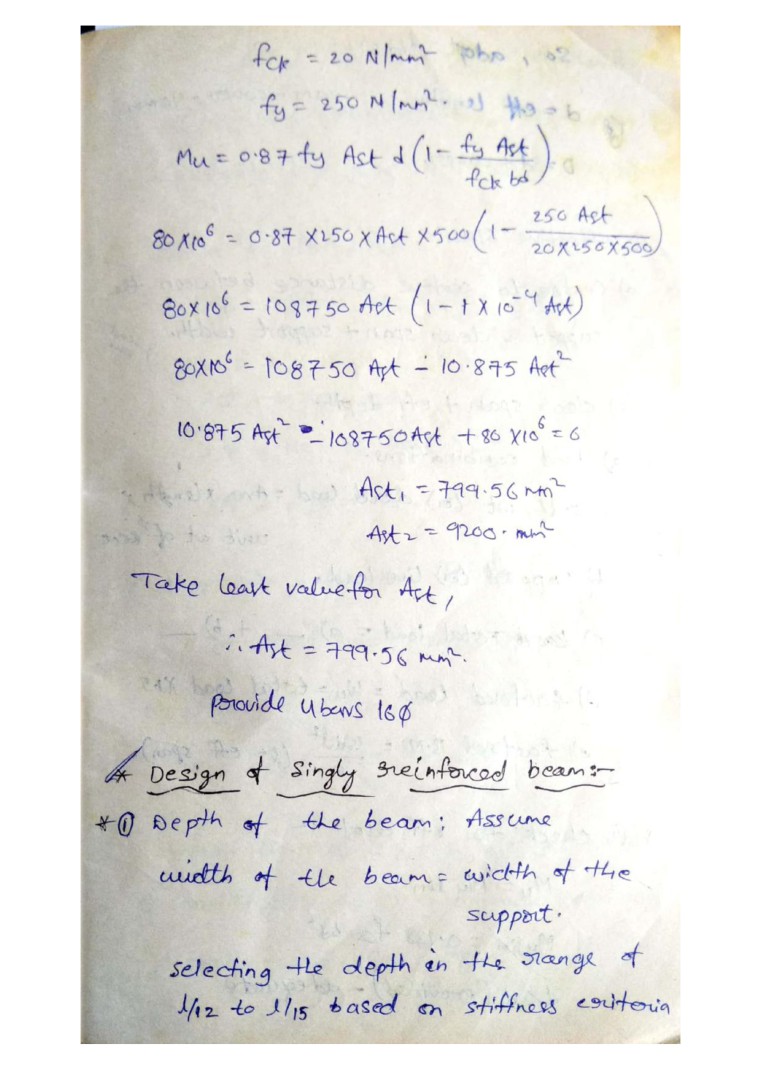 fck = 20 N/mm²
fy = 250 N/mm².
Mu = 0.87 fy Ast d (1 - fy Ast / fck bd)
80 X10⁶ = 0.87 X250 X Ast X500 (1 - 250 Ast / 20X250X500)
80X10⁶ = 108750 Ast (1 - 1 X 10⁻⁴ Ast)
80X10⁶ = 108750 Ast - 10.875 Ast²
10.875 Ast² - 108750Ast + 80 X10⁶ = 0
Ast₁ = 799.56 mm²
Ast₂ = 9200. mm²
Take least value for Ast,
∴ Ast = 799.56 mm².
Provide 4 bars 16ϕ
* Design of Singly reinforced beam:-
* ① Depth of the beam: Assume
width of the beam = width of the
support.
selecting the depth in the range of
l/12 to l/15 based on stiffness criteria